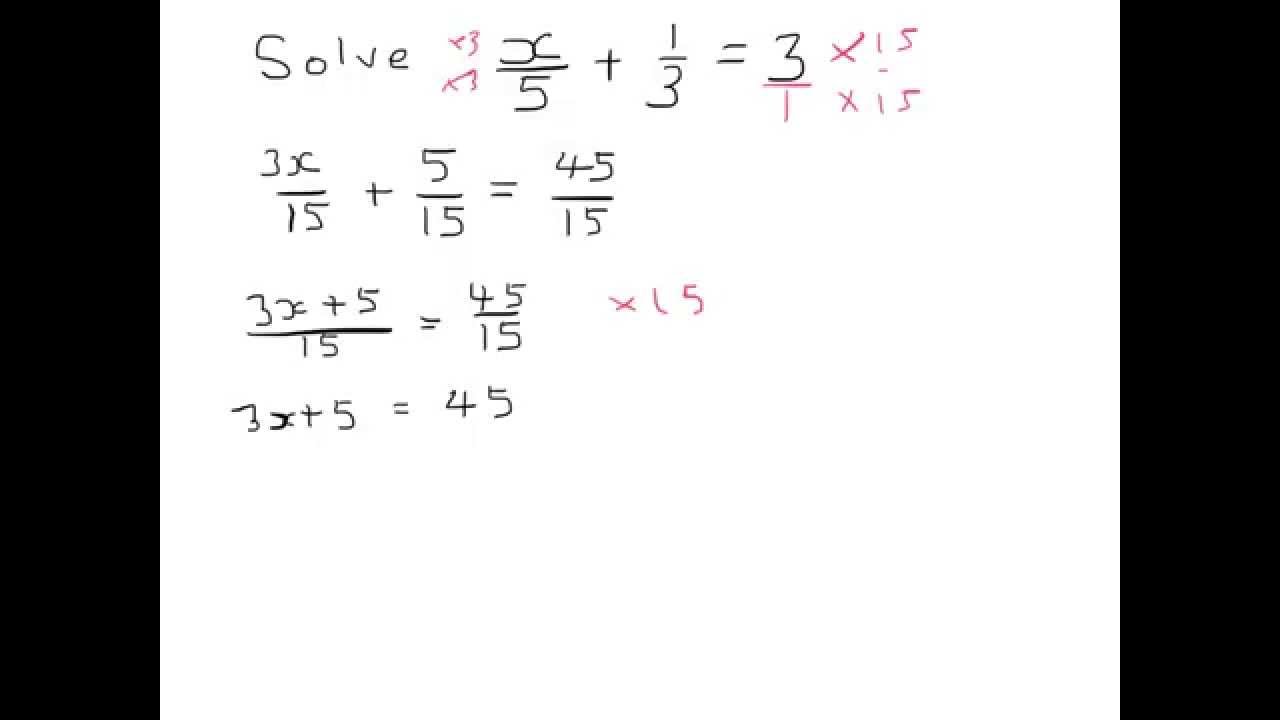 Solve ×3/×3 x/5 + 1/3 = 3/1 ×15/×15
3x/15 + 5/15 = 45/15
3x+5/15 = 45/15 ×15
3x+5 = 45